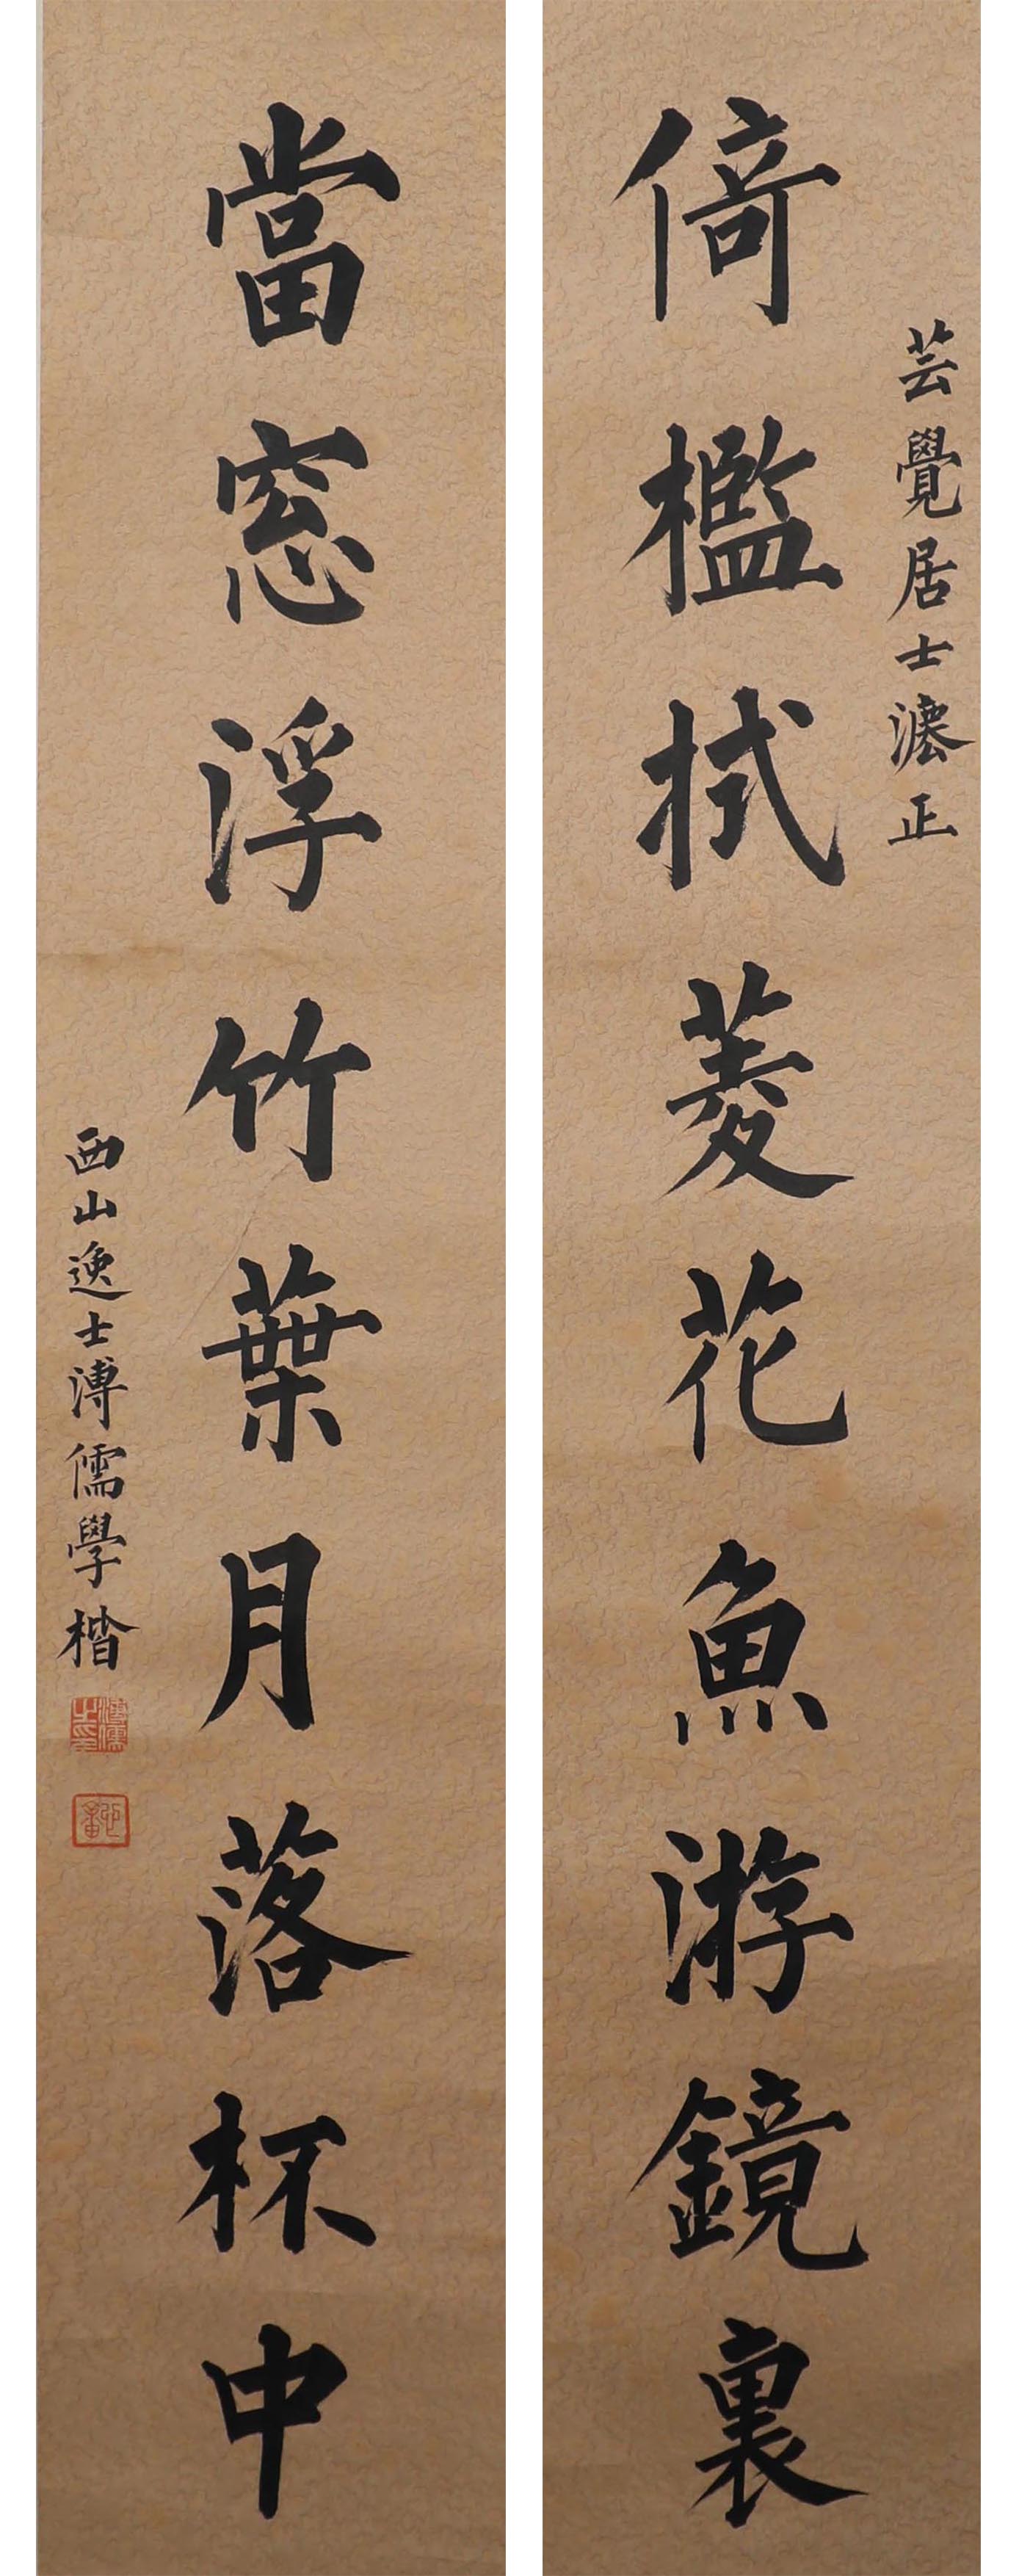 芸覺居士灋正
倚檻拭菱花魚游鏡裏
當窓浮竹葉月落杯中
西山逸士溥儒學楷
溥儒之印